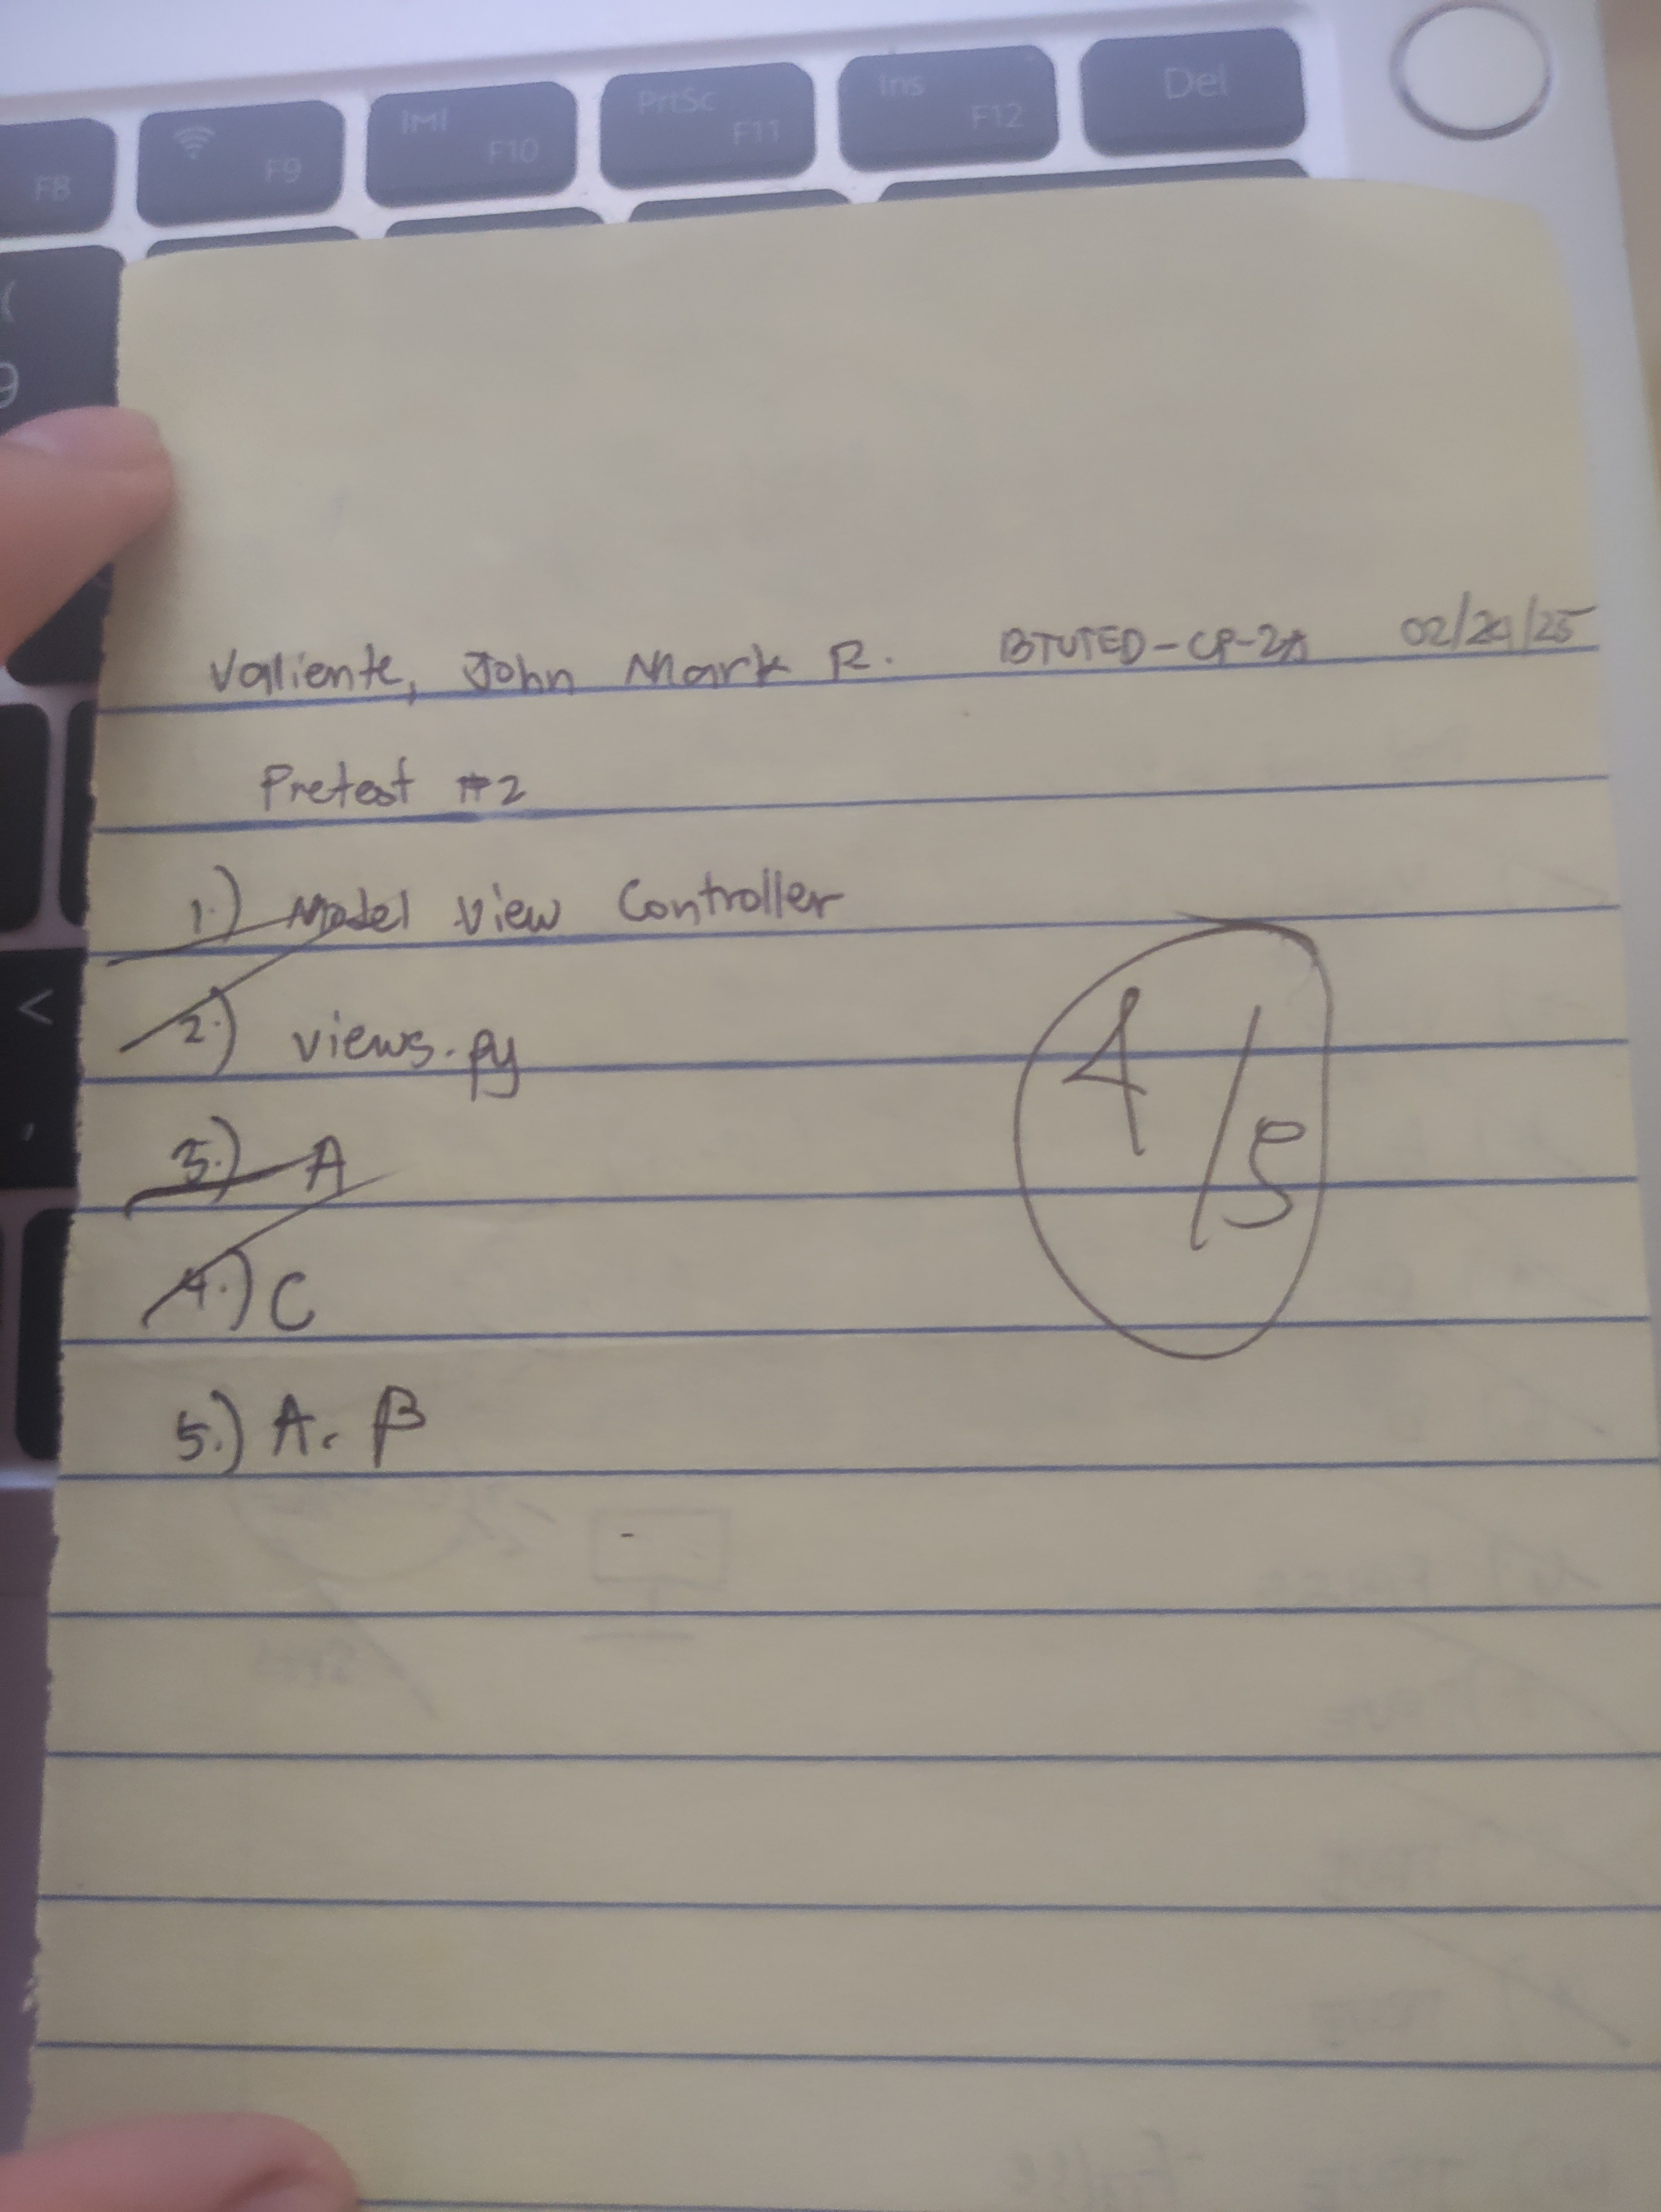 F8
F9
F10
PrtSc
F11
Ins
F12
Del
(
9
<
,
Valiente, John Mark R. BTVTED-CP-2A 02/24/25
Pretest #2
1.) Model View Controller
2.) views.py
3.) A
4.) C
5.) A. B
4/5